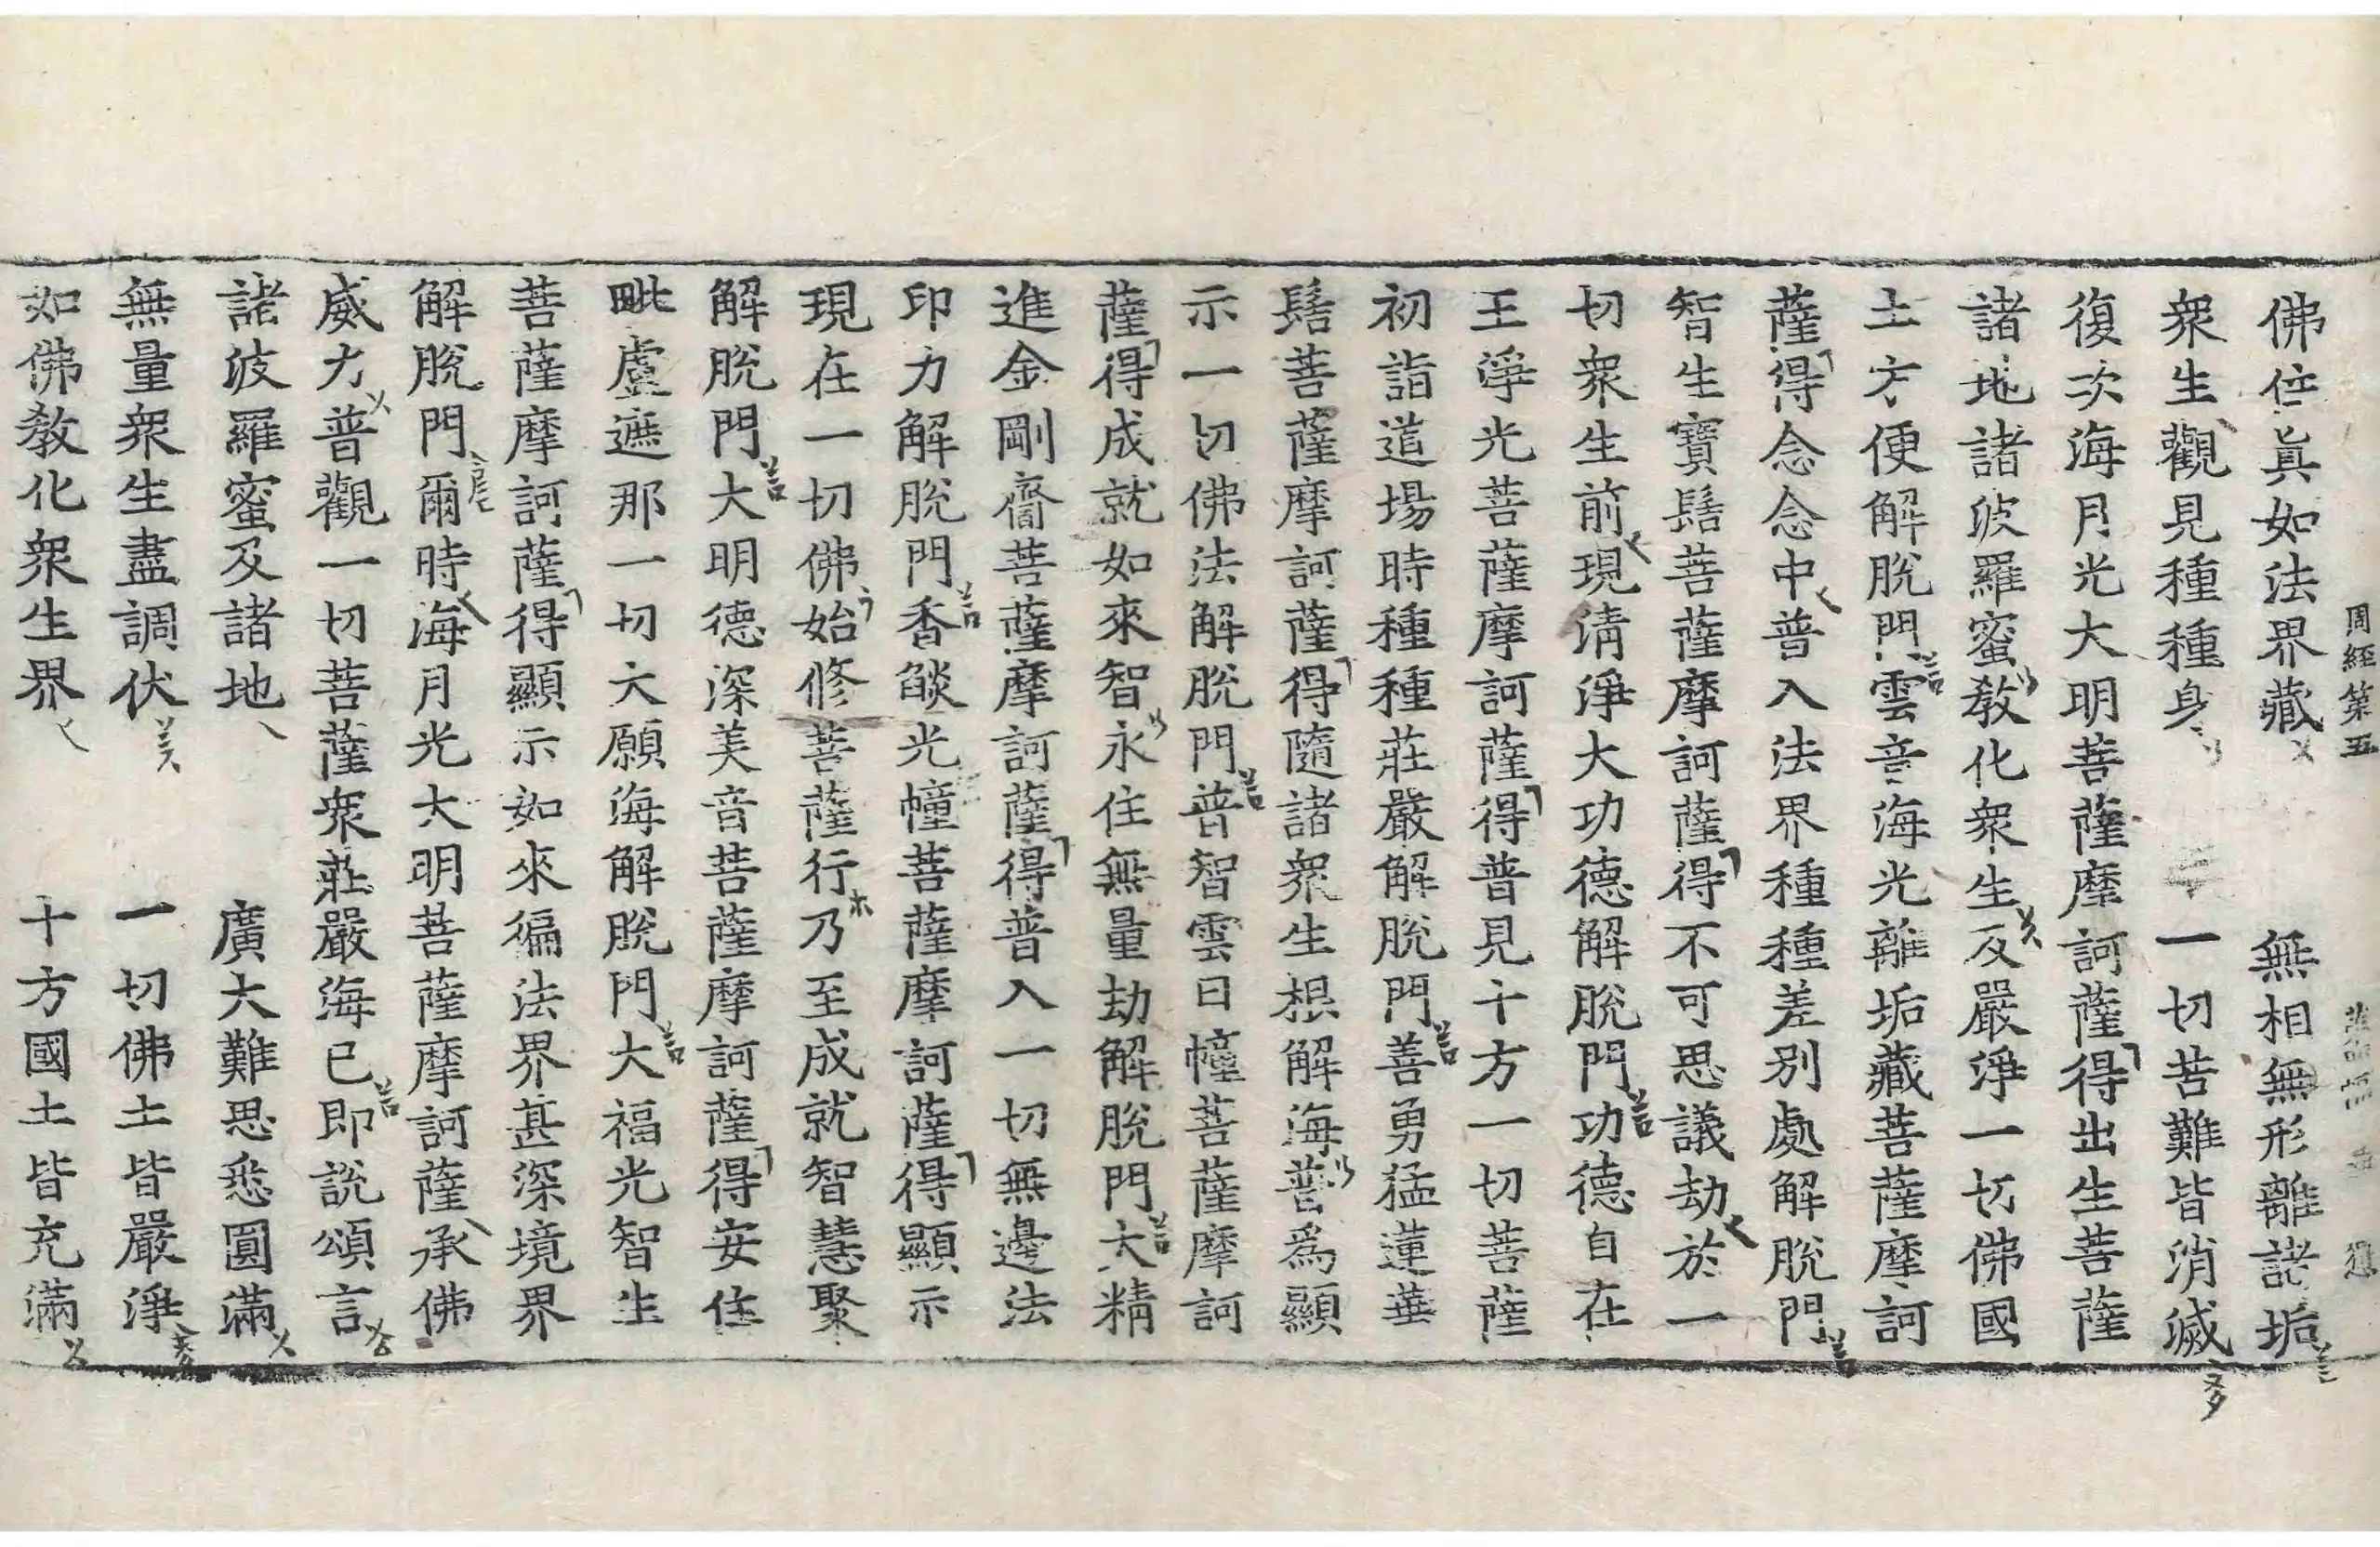 周經第五
佛住眞如法界藏　無相無形離諸垢
衆生觀見種種身　一切苦難皆消滅
復次海月光大明菩薩摩訶薩得出生菩薩
諸地諸波羅蜜敎化衆生及嚴淨一切佛國
土方便解脫門雲音海光離垢藏菩薩摩訶
薩得念念中普入法界種種差別處解脫門
智生寶髻菩薩摩訶薩得不可思議劫於一
切衆生前現淸淨大功德解脫門功德自在
王淨光菩薩摩訶薩得普見十方一切菩薩
初詣道場時種種莊嚴解脫門善勇猛蓮華
髻菩薩摩訶薩得隨諸衆生根解海普爲顯
示一切佛法解脫門普智雲日幢菩薩摩訶
薩得成就如來智永住無量劫解脫門大精
進金剛齎菩薩摩訶薩得普入一切無邊法
印力解脫門香焰光幢菩薩摩訶薩得顯示
現在一切佛始修菩薩行乃至成就智慧聚
解脫門大明德深美音菩薩摩訶薩得安住
毗盧遮那一切大願海解脫門大福光智生
菩薩摩訶薩得顯示如來徧法界甚深境界
解脫門爾時海月光大明菩薩摩訶薩承佛
威力普觀一切菩薩衆莊嚴海已即說頌言
諸波羅蜜及諸地　廣大難思悉圓滿
無量衆生盡調伏　一切佛土皆嚴淨
如佛敎化衆生界　十方國土皆充滿